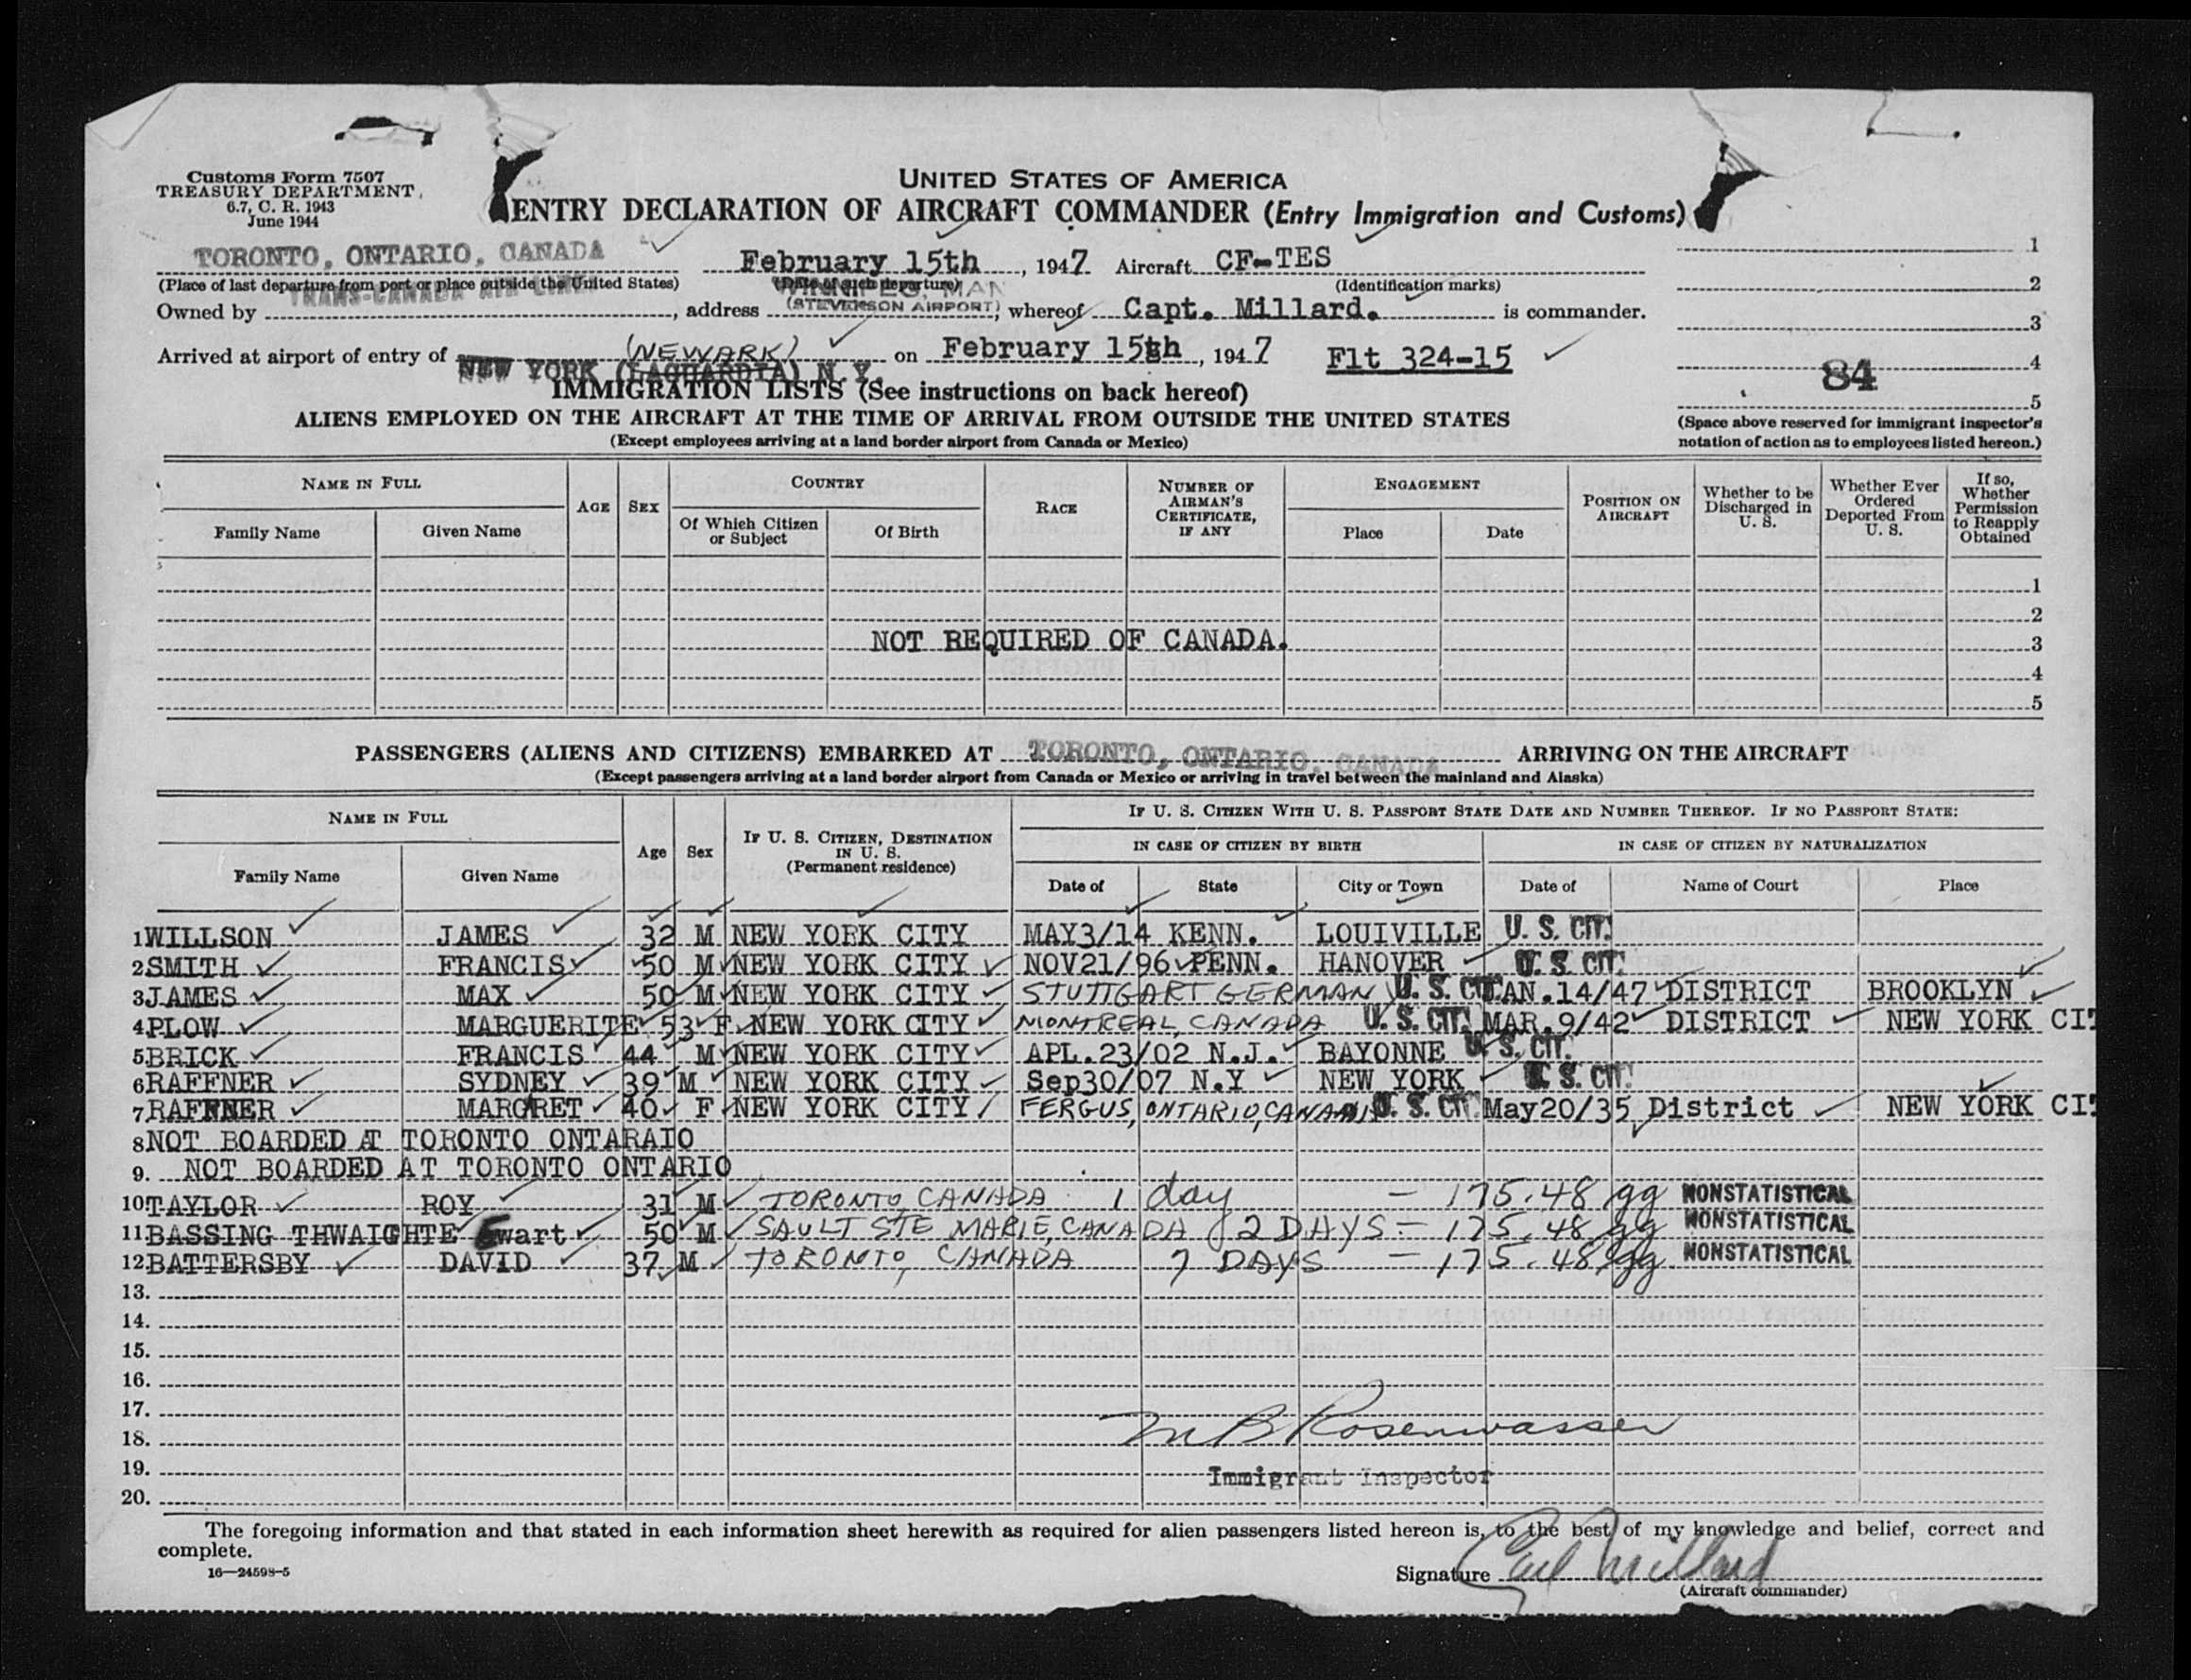 Customs Form 7507
TREASURY DEPARTMENT
6.7, C. R. 1943
June 1944
UNITED STATES OF AMERICA
ENTRY DECLARATION OF AIRCRAFT COMMANDER (Entry Immigration and Customs)
TORONTO, ONTARIO, CANADA February 15th, 1947 Aircraft CF-TES 1
(Place of last departure from port or place outside the United States) (Date of such departure) (Identification marks) 2
TRANS-CANADA AIR LINES WINNIPEG, MAN
Owned by , address (STEVENSON AIRPORT), whereof Capt. Millard. is commander. 3
Arrived at airport of entry of (NEWARK) on February 15th, 1947 Flt 324-15 4
NEW YORK (LAGUARDIA) N.Y. 84
IMMIGRATION LISTS (See instructions on back hereof) 5
ALIENS EMPLOYED ON THE AIRCRAFT AT THE TIME OF ARRIVAL FROM OUTSIDE THE UNITED STATES
(Except employees arriving at a land border airport from Canada or Mexico)
(Space above reserved for immigrant inspector's
notation of action as to employees listed hereon.)
NAME IN FULL AGE SEX COUNTRY RACE NUMBER OF AIRMAN'S CERTIFICATE, IF ANY ENGAGEMENT POSITION ON AIRCRAFT Whether to be Discharged in U. S. Whether Ever Ordered Deported From U. S. If so, Whether Permission to Reapply Obtained
Family Name Given Name Of Which Citizen or Subject Of Birth Place Date
1
2
NOT REQUIRED OF CANADA. 3
4
5
PASSENGERS (ALIENS AND CITIZENS) EMBARKED AT TORONTO, ONTARIO, CANADA ARRIVING ON THE AIRCRAFT
(Except passengers arriving at a land border airport from Canada or Mexico or arriving in travel between the mainland and Alaska)
NAME IN FULL Age Sex IF U. S. CITIZEN, DESTINATION IN U. S. (Permanent residence) IF U. S. CITIZEN WITH U. S. PASSPORT STATE DATE AND NUMBER THEREOF. IF NO PASSPORT STATE:
IN CASE OF CITIZEN BY BIRTH IN CASE OF CITIZEN BY NATURALIZATION
Family Name Given Name Date of State City or Town Date of Name of Court Place
1 WILLSON JAMES 32 M NEW YORK CITY MAY3/14 KENN. LOUIVILLE U. S. CIT.
2 SMITH FRANCIS 50 M NEW YORK CITY NOV21/96 PENN. HANOVER U. S. CIT.
3 JAMES MAX 50 M NEW YORK CITY STUTTGART GERMANY U. S. CIT. JAN.14/47 DISTRICT BROOKLYN
4 PLOW MARGUERITE 53 F NEW YORK CITY MONTREAL, CANADA U. S. CIT. MAR.9/42 DISTRICT NEW YORK CIT
5 BRICK FRANCIS 44 M NEW YORK CITY APL.23/02 N.J. BAYONNE U. S. CIT.
6 RAFFNER SYDNEY 39 M NEW YORK CITY Sep30/07 N.Y NEW YORK U. S. CIT.
7 RAFFNER MARGARET 40 F NEW YORK CITY FERGUS, ONTARIO, CANADA U. S. CIT. May20/35 District NEW YORK CIT
8 NOT BOARDED AT TORONTO ONTARAIO
9. NOT BOARDED AT TORONTO ONTARIO
10 TAYLOR ROY 31 M TORONTO, CANADA 1 day - 175.48 gg NONSTATISTICAL
11 BASSING THWAIGHTE Ewart 50 M SAULT STE MARIE, CANADA 2 DAYS - 175.48 gg NONSTATISTICAL
12 BATTERSBY DAVID 37 M TORONTO, CANADA 7 DAYS - 175.48 gg NONSTATISTICAL
13.
14.
15.
16.
17.
M B Rosenwasser
18.
19.
Immigrant Inspector
20.
The foregoing information and that stated in each information sheet herewith as required for alien passengers listed hereon is, to the best of my knowledge and belief, correct and
complete.
16—24598-5
Signature Earl Millard
(Aircraft commander)